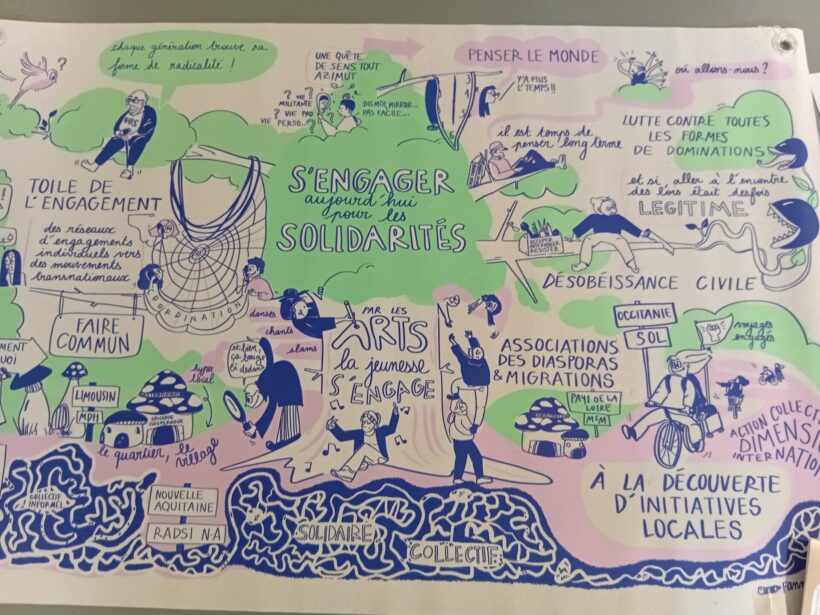 chaque génération trouve sa
forme de radicalité !
?
UNE QUÊTE
DE SENS TOUT
AZIMUT
? VIE ?
MILITANTE
? VIE PRO
VIE ?
PERSO...?
DIS MOI, MIRROIR...
PAS FACILE...
PENSER LE MONDE
Y'A PLUS
L'TEMPS !!
il est temps de
penser long terme
où allons-nous ?
LUTTE CONTRE TOUTES
LES FORMES
DE DOMINATIONS
et si, aller à l'encontre
des lois était desfois
LEGITIME
OCCUPER
RESISTER
DÉSOBÉISSANCE CIVILE
S'ENGAGER
aujourd'hui
pour les
SOLIDARITÉS
TOILE DE
L'ENGAGEMENT
des réseaux
d'engagements
individuels vers
des mouvements
transnationaux
COORDINATION
!
FAIRE
COMMUN
MENT
UOI
LIMOUSIN
MDH
EPICERIE
COOPERATIVE
hyper
local
le quartier, le village
et bien,
ça bouge
là dedans
danses
chants
slams
PAR LES
ARTS
la jeunesse
S'ENGAGE
ASSOCIATIONS
DES DIASPORAS
& MIGRATIONS
PAYS DE LA
LOIRE
MCM
OCCITANIE
SOL
voyages
engagés
ACTION COLLECTI
DIMENSI
INTERNATION
À LA DÉCOUVERTE
D'INITIATIVES
LOCALES
COLLECTIF
INFORMEL
NOUVELLE
AQUITAINE
RADSI N-A
SOLIDAIRE
COLLECTIF
Fann